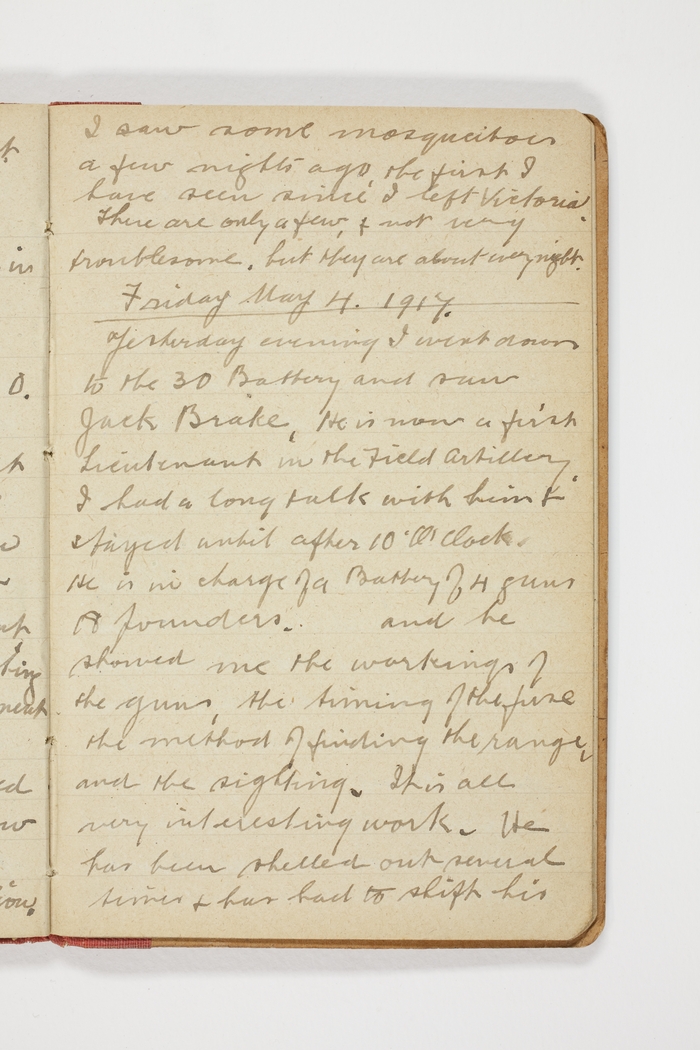 I saw some mosquitoes
a few nights ago, the first I
have seen since I left Victoria.
There are only a few, & not very
troublesome, but they are about every night.
Friday May 4. 1917.
Yesterday evening I went down
to the 30 Battery and saw
Jack Brake, He is now a first
Lieutenant in the Field Artillery
I had a long talk with him &
stayed until after 10 'O'Clock.
He is in charge of a Battery of 4 guns
18 pounders. and he
showed me the workings of
the guns, the timing of the fuse
the method of finding the range,
and the sighting. It is all
very interesting work. He
has been shelled out several
times & has had to shift his
in
O.